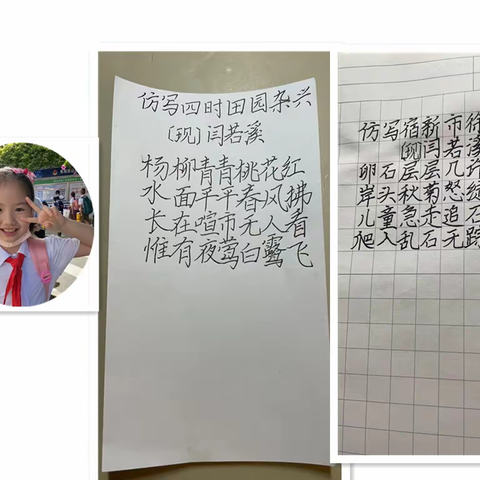 仿写四时田园杂兴
〔现〕闫若溪
杨柳青青桃花红
水面平平春风拂
长在喧市无人看
惟有夜莺白鹭飞
仿写宿新市徐
〔现〕闫若溪
卵石层层几
岸头秋菊怒绽
儿童急走追石
爬入乱石无踪